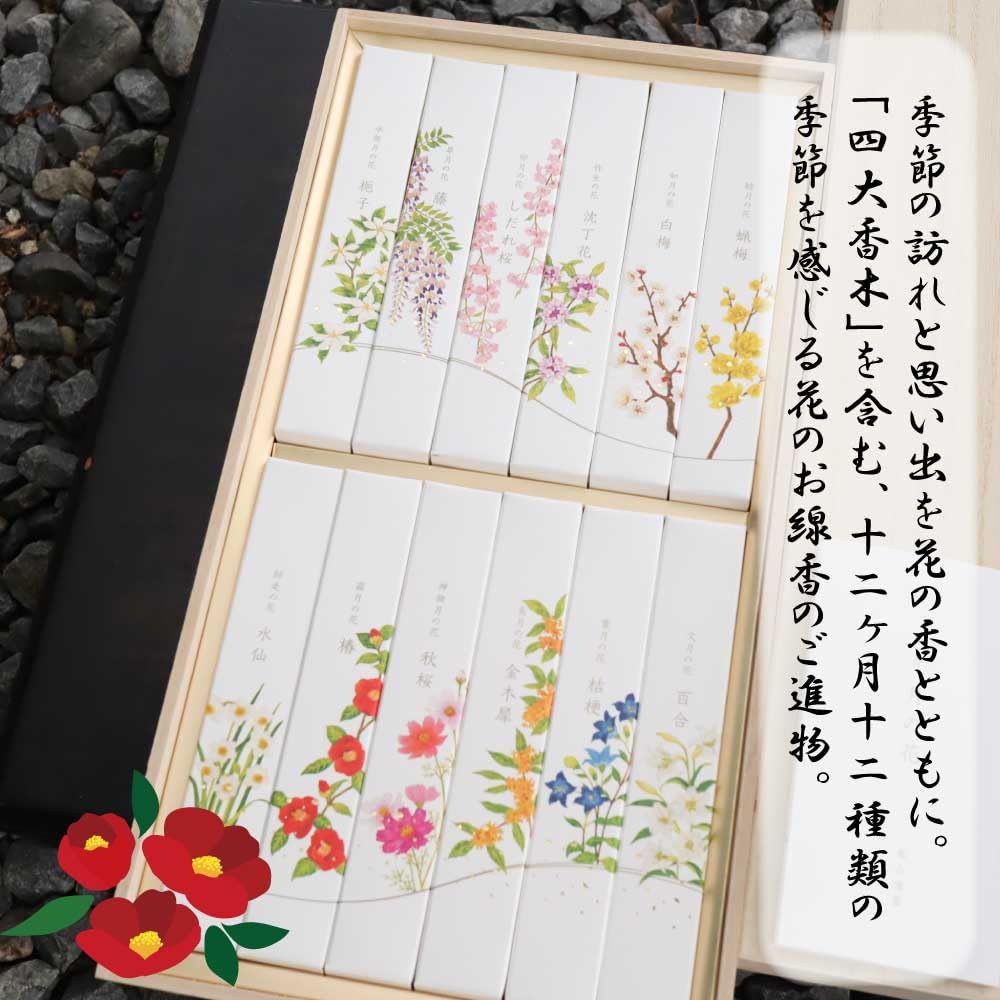 季節の訪れと思い出を花の香とともに。
「四大香木」を含む、十二ヶ月十二種類の
季節を感じる花のお線香のご進物。
睦月の花 蝋梅
如月の花 白梅
弥生の花 沈丁花
卯月の花 しだれ桜
皐月の花 藤
水無月の花 梔子
文月の花 百合
葉月の花 桔梗
長月の花 金木犀
神無月の花 秋桜
霜月の花 椿
師走の花 水仙
花